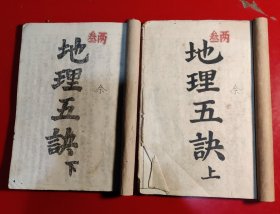 叁两
地理五訣下
叁两
地理五訣上